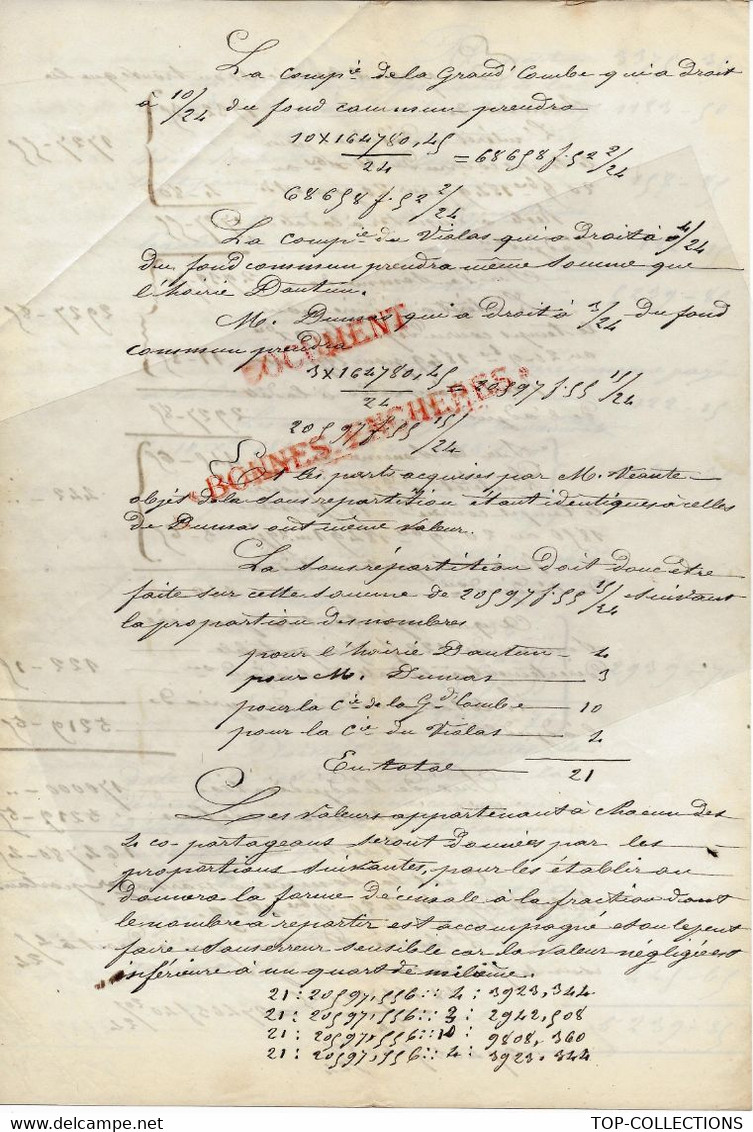 La comp.ie de la Grand'Combe qui a droit
à 10/24 du fond commun prendra
10 x 164780,45 / 24 = 68658 f. 52 2/24
68658 f. 52 2/24
La comp.ie de Vialas qui a droit à 4/24
du fond commun prendra même somme que
l'hoirie Dautun.
M. Dumas qui a droit à 3/24 du fond
commun prendra
3 x 164780,45 / 24 = 20597 f. 55 15/24
20597 f. 55 15/24
DOCUMENT
"BONNES ENCHERES"
les parts acquises par M.
objés de la sous repartition étant identiques à celles
de Dumas ont même valeur.
La sous répartition doit donc être
faite sur cette somme de 20597 f. 55 15/24 suivant
la proportion des nombres
pour l'hoirie Dautun — 4
pour M. Dumas — 3
pour la C.ie de la G.d Combe — 10
pour la C.ie du Vialas — 4
En total — 21
Les valeurs appartenant à chacun des
4 co-partageans seront données par les
proportions suivantes, pour les établir on
donnera la forme décimale à la fraction dont
le nombre à repartir est accompagné et on le peut
faire sans erreur sensible car la valeur négligée est
inférieure à un quart de milième.
21 : 20597,556 :: 4 : 3923,344
21 : 20597,556 :: 3 : 2942,508
21 : 20597,556 :: 10 : 9808,360
21 : 20597,556 :: 4 : 3923,344
TOP-COLLECTIONS